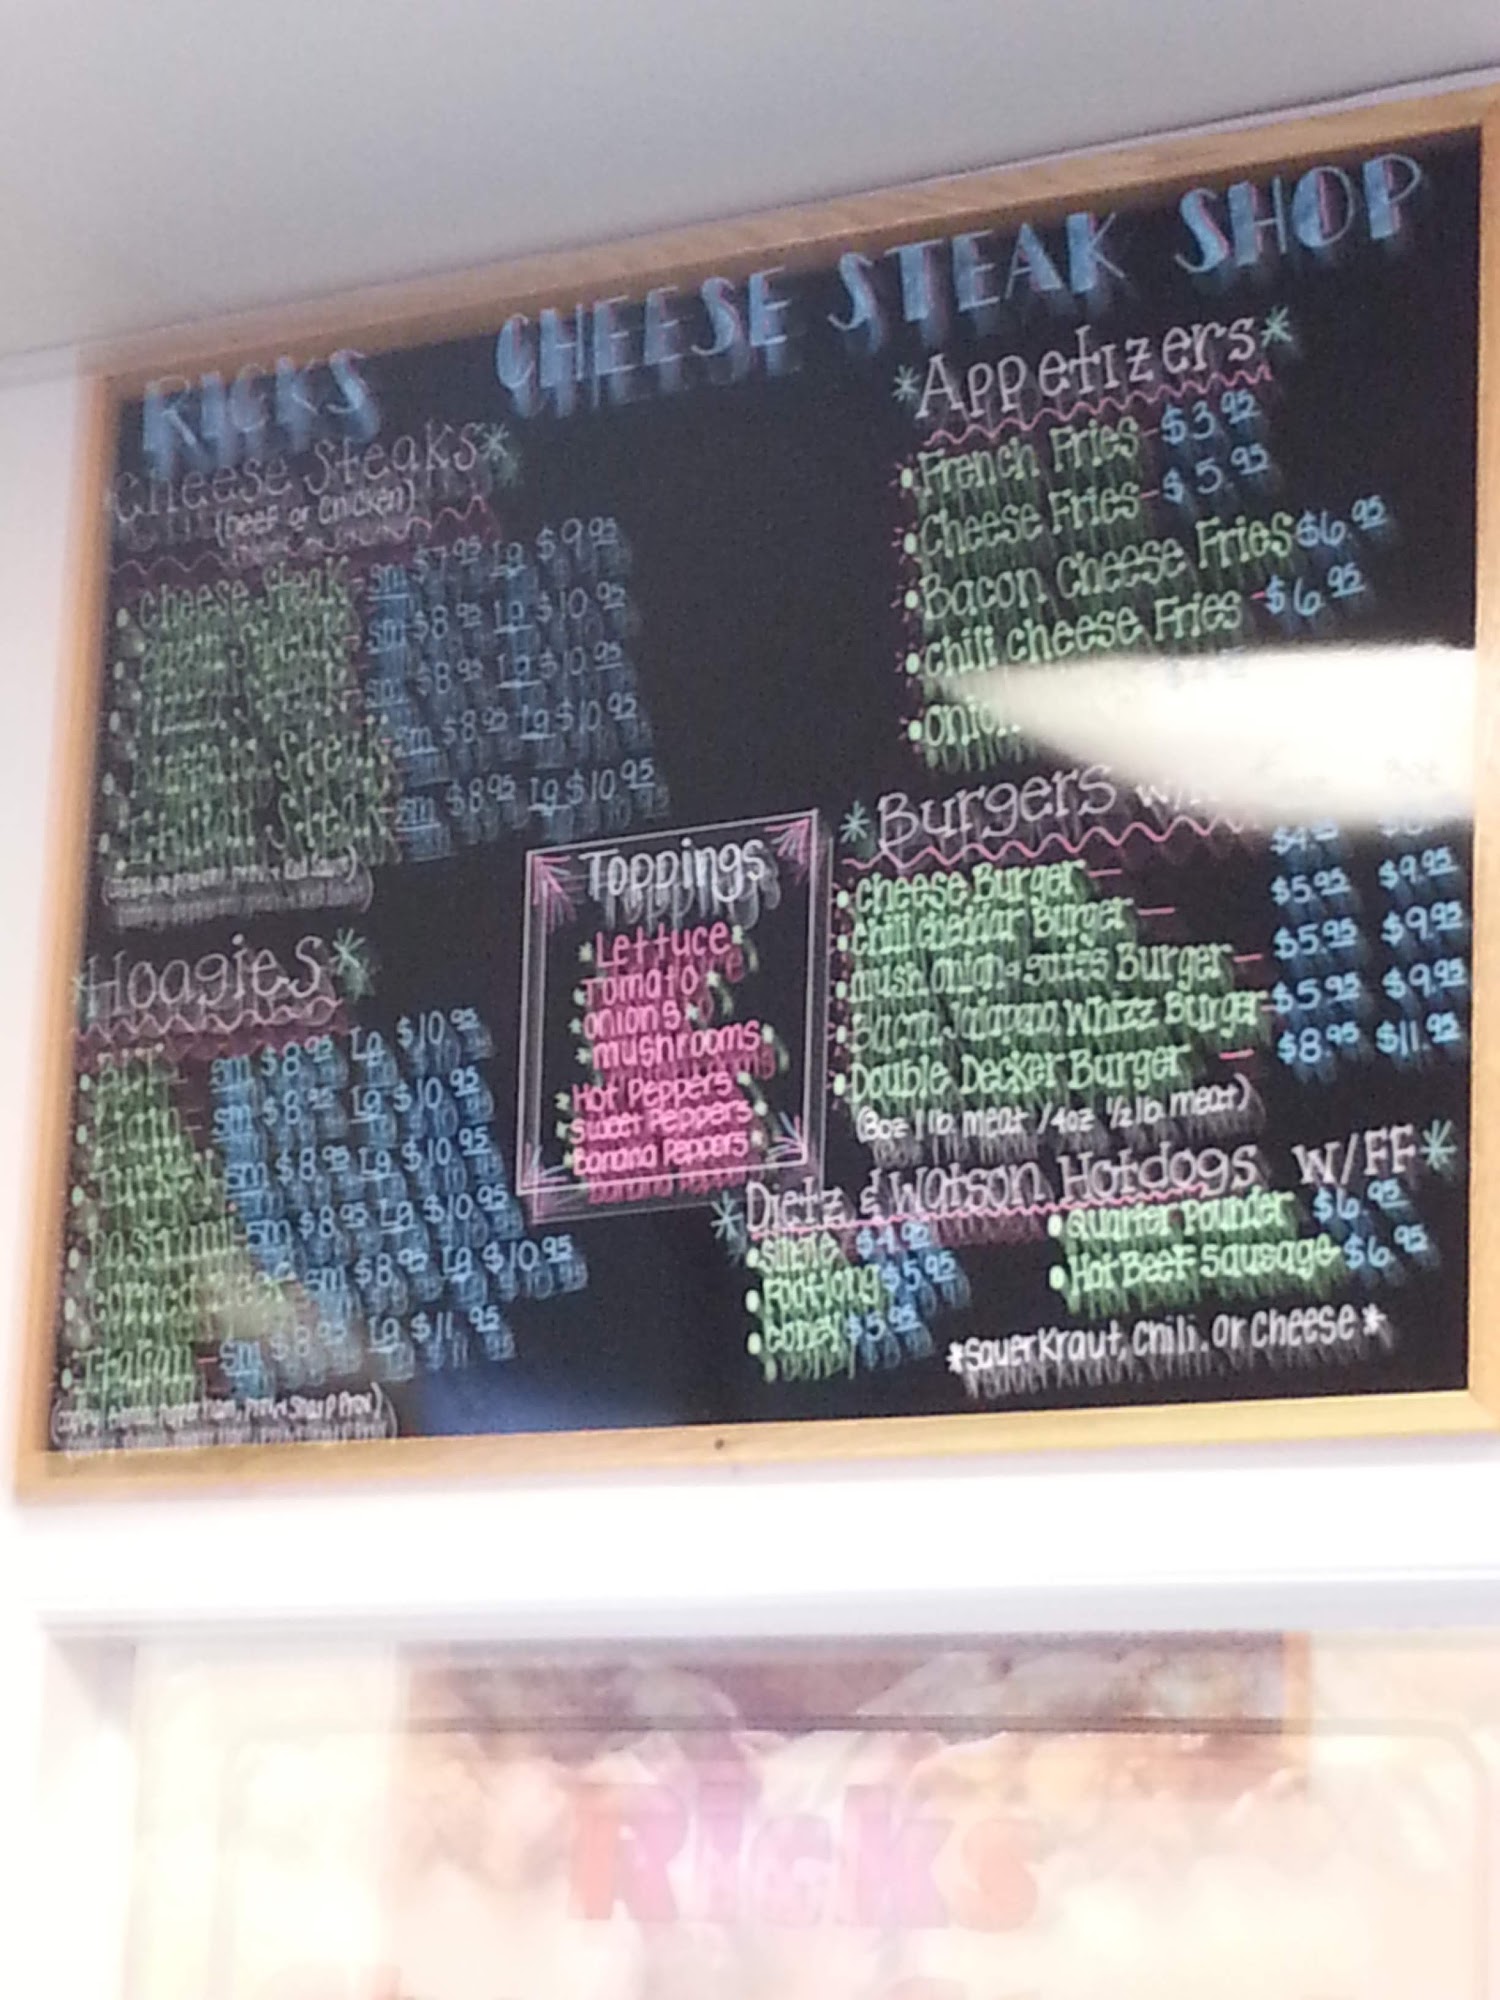 RICKS CHEESE STEAK SHOP
Cheese Steaks*
(beef or chicken)
• Cheese Steak - sm $7.95 Lg $9.95
Steak - sm $8.95 Lg $10.95
Steak - sm $8.95 Lg $10.95
Steak - sm $8.95 Lg $10.95
Italian Steak - sm $8.95 Lg $10.95
*Hoagies*
• sm $8.95 Lg $10.95
• sm $8.95 Lg $10.95
• Turkey sm $8.95 Lg $10.95
• Pastrami - sm $8.95 Lg $10.95
• Corned Beef sm $8.95 Lg $10.95
• Italian - sm $8.95 Lg $11.95
Toppings
*Lettuce*
*Tomato*
*onions*
*mushrooms*
*Hot Peppers*
*Sweet Peppers*
*Banana Peppers*
*Appetizers*
• French Fries - $3.95
• Cheese Fries - $5.95
• Bacon Cheese Fries $6.95
• Chili Cheese Fries - $6.95
• onion
*Burgers
• Cheese Burger -
• Chili cheddar Burger - $5.95 $9.95
• mush onion & swiss Burger - $5.95 $9.95
• Bacon Jalapeno Whizz Burger - $5.95 $9.95
• Double Decker Burger - $8.95 $11.95
(8oz 1 lb. meat / 4oz 1/2 lb. meat)
*Dietz & Watson Hotdogs W/FF*
• $4.95
• Footlong $5.95
• Coney $5.95
• Quarter Pounder $6.95
• Hot Beef Sausage $6.95
*Sauer Kraut, Chili, or Cheese*
Ricks